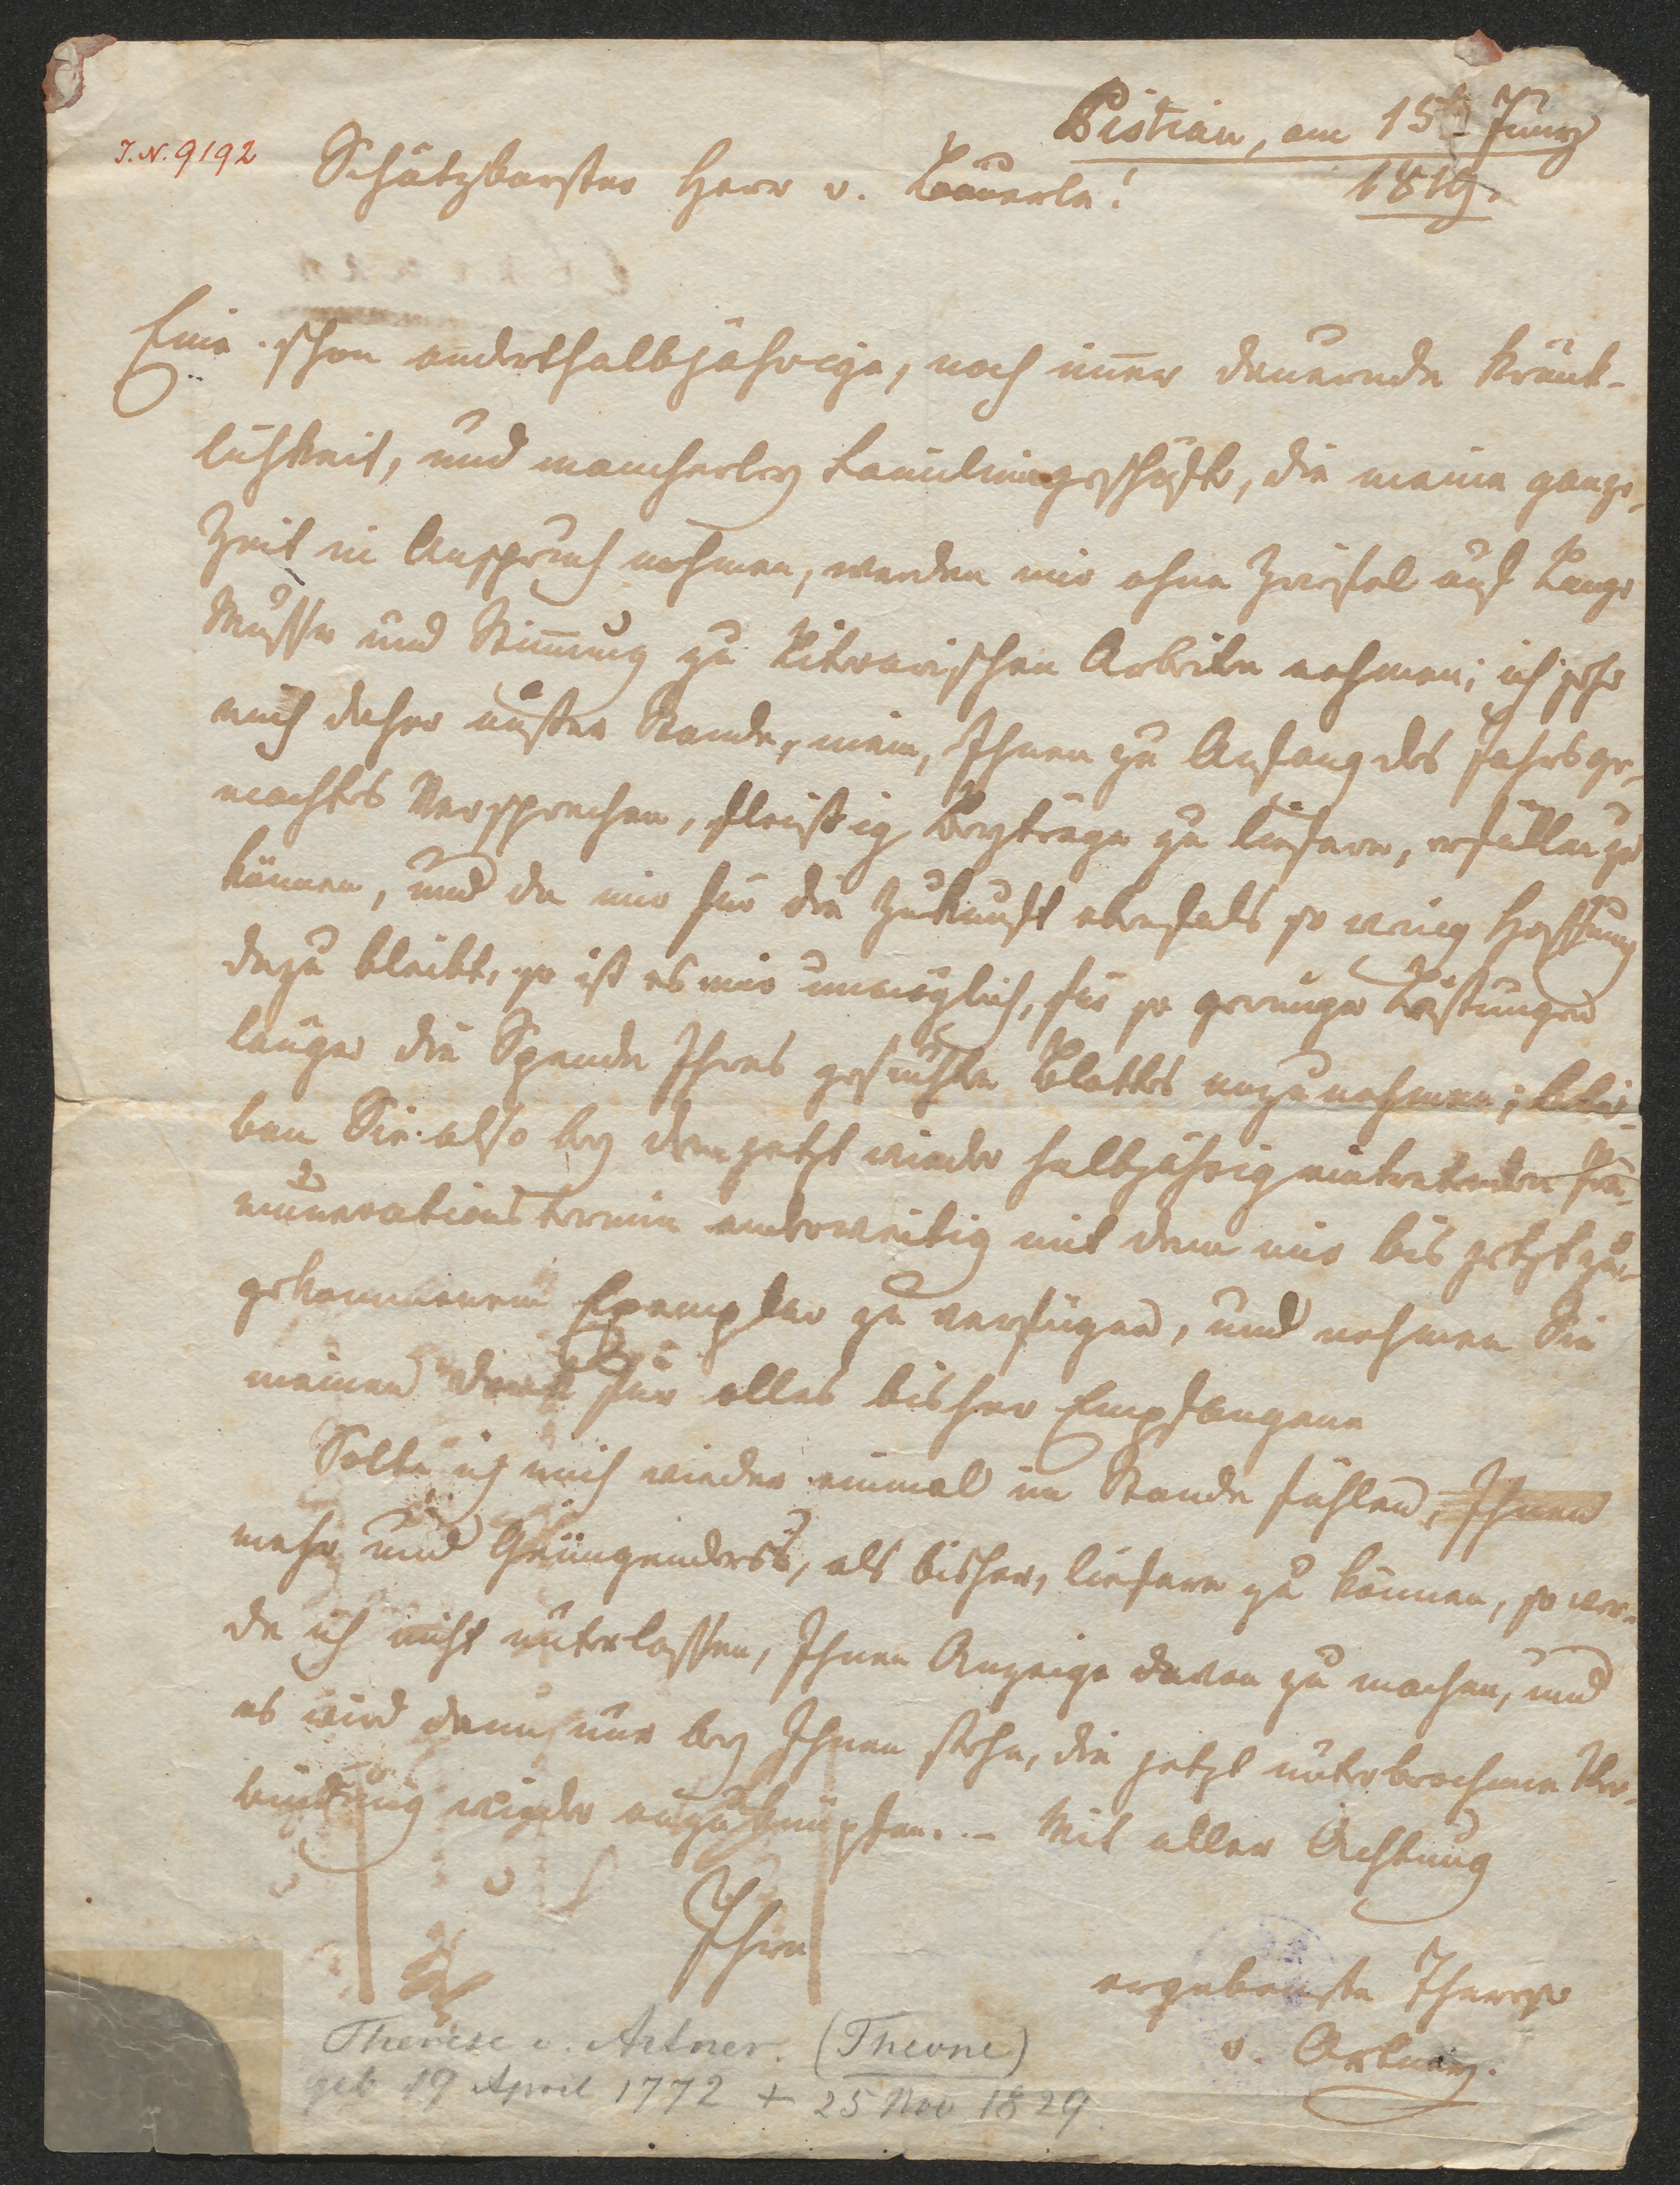 Pistian, am 15t Juny
1819.
J.N. 9192
Schätzbarster Herr v. Bäuerle!
Eine schon anderthalbjährige, noch im̅er dauernde Kränk-
lichkeit, und mancherley Familiengeschäfte, die meine ganze
Zeit in Anspruch nehmen, werden mir ohne Zweifel auf lange
Musse und Stim̅ung zu litterarischen Arbeiten nehmen; ich sehe
mich daher außer Stande, mein, Ihnen zu Anfang des Jahrs ge-
machtes Versprechen, fleißig Beyträge zu liefern, erfüllen zu
können, und da mir für die Zukunft ebenfals so wenig Hoffnung
dazu bleibt, so ist es mir unmöglich, für so geringe Leistungen
länger die Spende Ihres gesuchten Blattes anzunehmen; belie-
ben Sie also bey dem jetzt wieder halbjährig eintretenden Prä-
numerationstermin anderweitig mit dem mir bis jetzt zu-
gekommenem Exemplar zu verfügen, und nehmen Sie
meinen Dank für alles bisher Empfangene
Sollte ich mich wieder einmal im Stande fühlen, Ihnen
mehr und Genügenderes, als bisher, liefern zu können, so wer-
de ich nicht unterlassen, Ihnen Anzeige davon zu machen, und
es wird dann nur bey Ihnen stehn, die jetzt unterbrochene Ver-
bindung wieder anzuknüpfen. – Mit aller Achtung
Ihre
ergebenste Therese
v. Artner.
Therese v. Artner. (Theone)
geb 19 April 1772 + 25 Nov 1829.